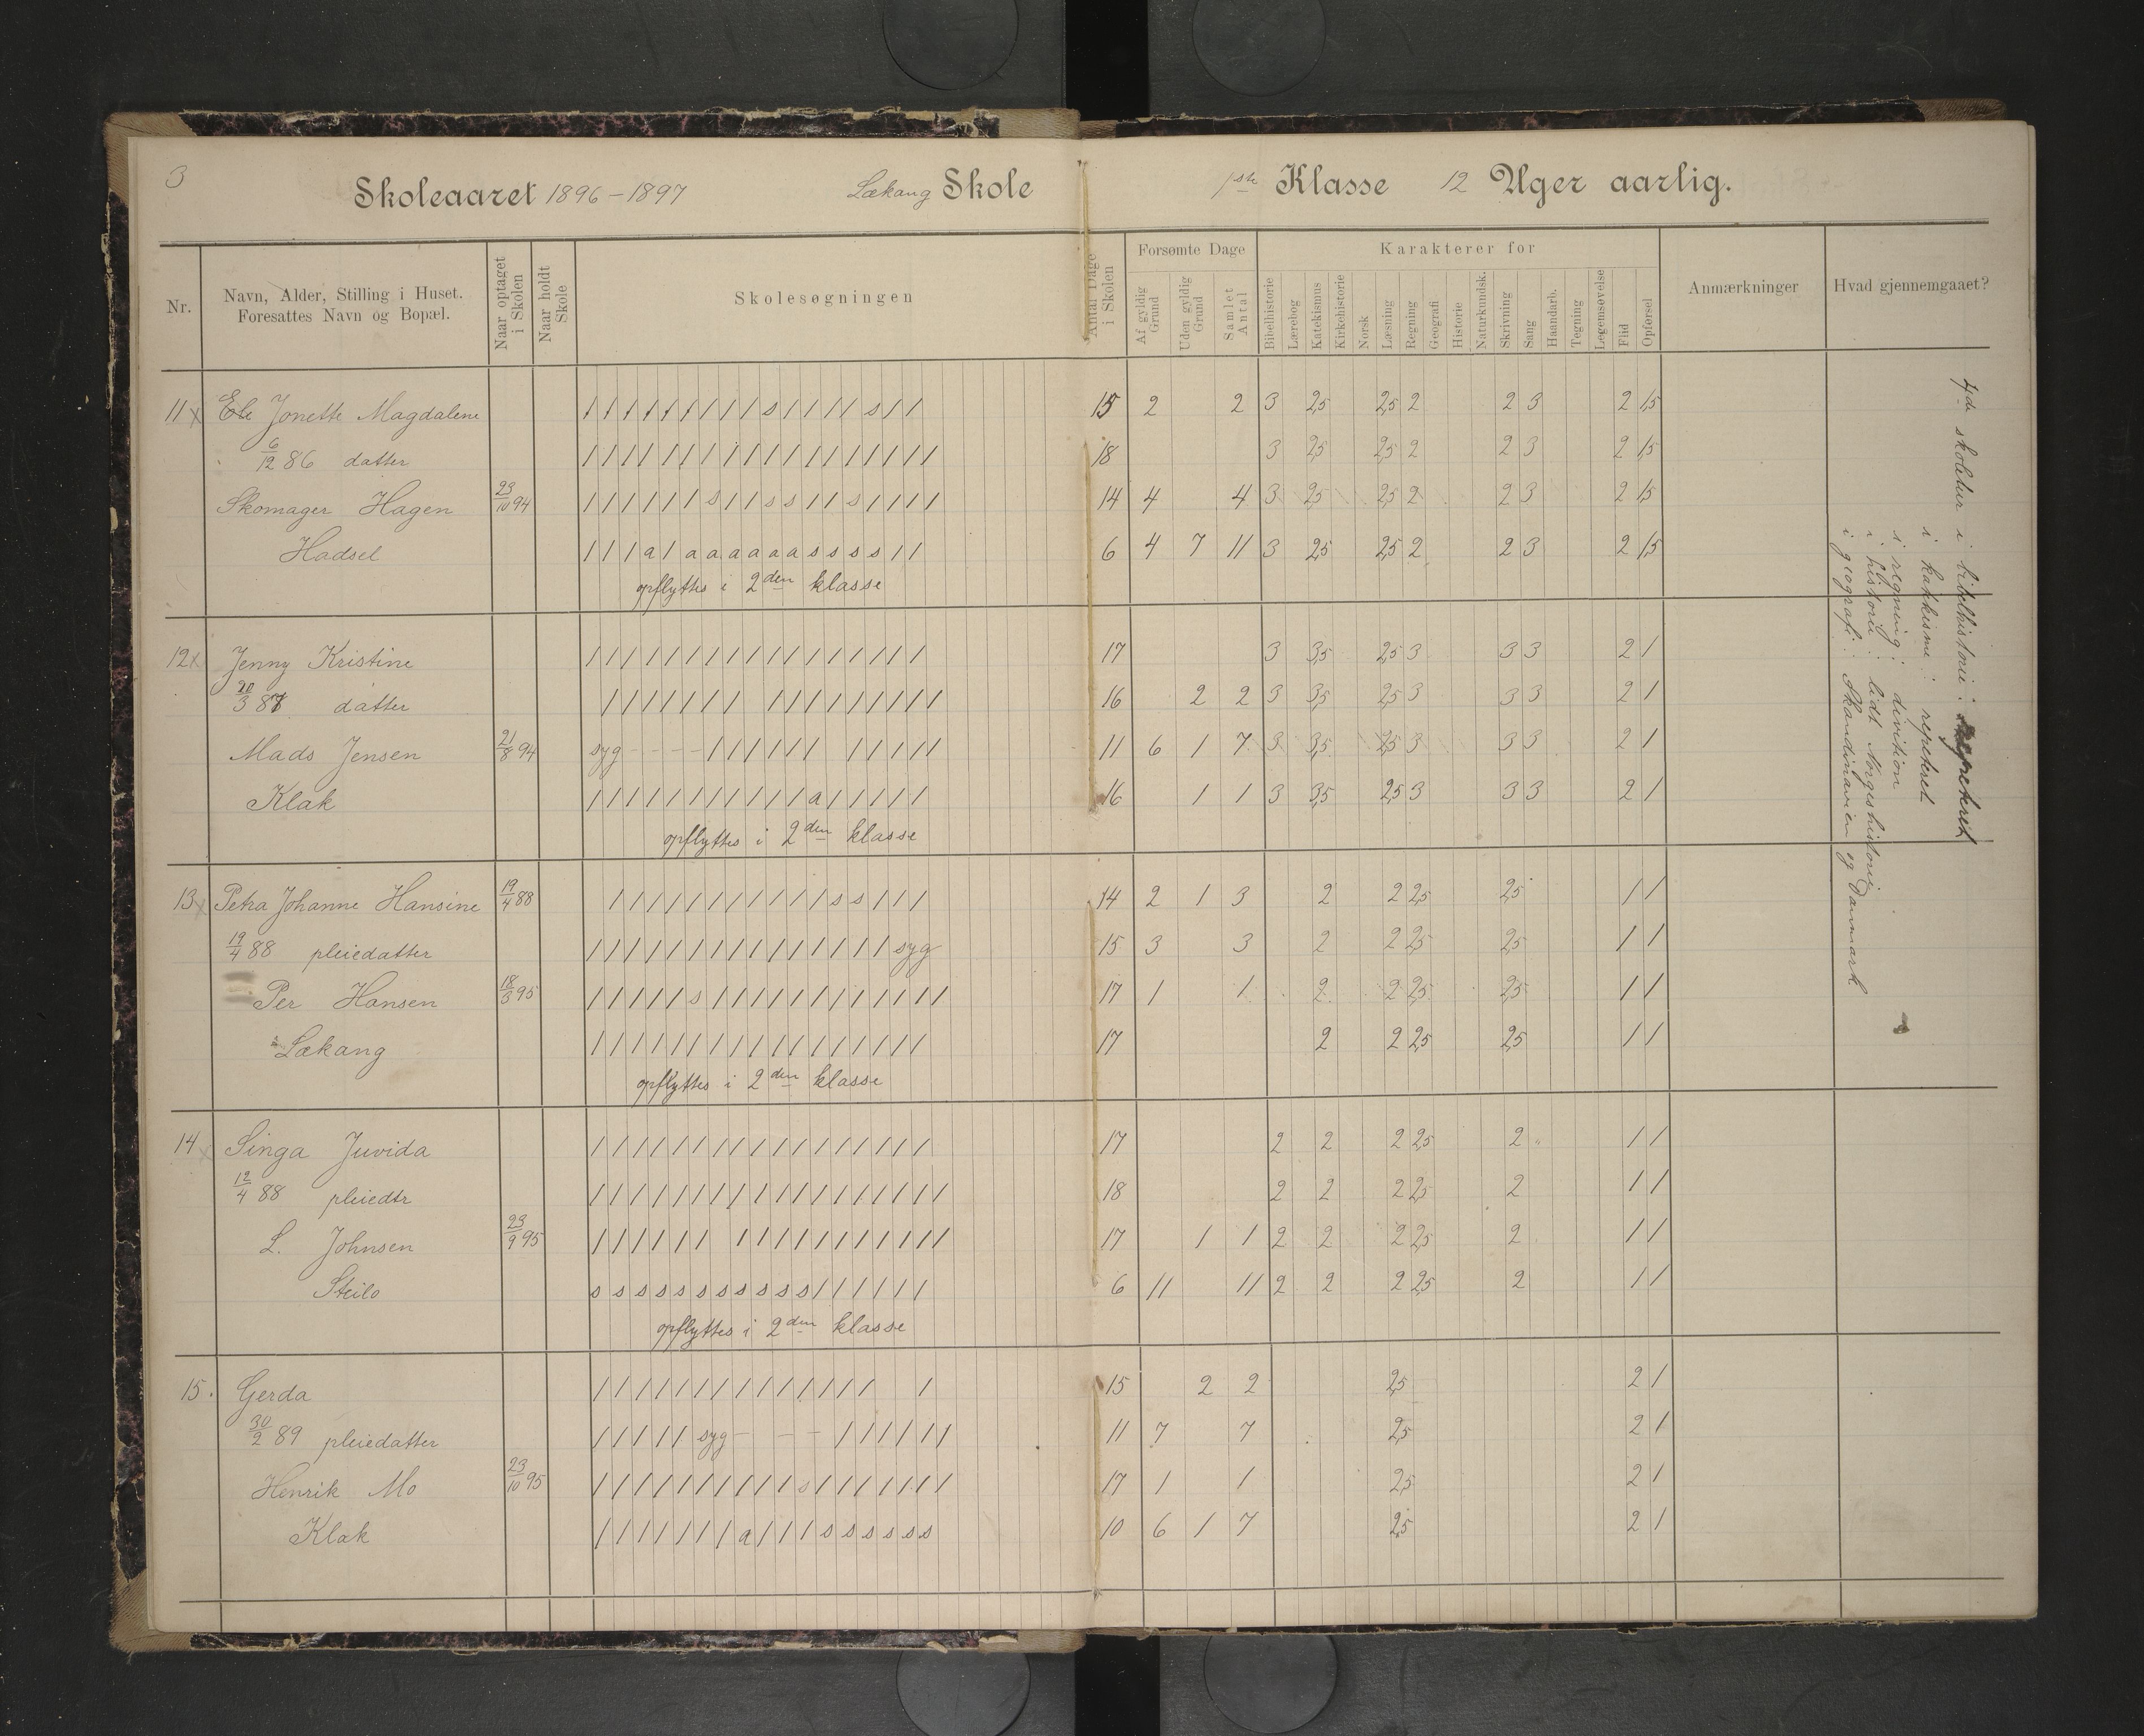 3
Skoleaaret 1896-1897 Lækang Skole 1ste Klasse 12 Uger aarlig.
Nr.
Navn, Alder, Stilling i Huset.
Foresattes Navn og Bopæl.
Naar optaget i Skolen
Naar holdt Skole
Skolesøgningen
Antal Dage i Skolen
Forsømte Dage
Af gyldig Grund
Uden gyldig Grund
Samlet Antal
Karakterer for
Bibelhistorie
Lærebog
Katekismus
Kirkehistorie
Norsk
Læsning
Regning
Geografi
Historie
Naturkundsk.
Skrivning
Sang
Haandarb.
Tegning
Legemsøvelse
Flid
Opførsel
Anmærkninger
Hvad gjennemgaaet?
11 x Jonette Magdalene / / / / / / / / / s / / / / s / / 15 2 2 3 2,5 2,5 2 2 3 2 1,5
6/12 86 datter / / / / / / / / / / / / / / / / / / 18 3 2,5 2,5 2 2 3 2 1,5
Skomager Hagen 23/10 94 / / / / / / s / / s s / / s / / / / 14 4 4 3 2,5 2,5 2 2 3 2 1,5
Hadsel / / / a / a a a a a a s s s s / / 6 4 7 11 3 2,5 2,5 2 2 3 2 1,5
opflyttes i 2den klasse
12 x Jenny Kristine / / / / / / / / / / / / / / / / / 17 3 3,5 2,5 3 3 3 2 1
20/3 87 datter / / / / / / / / / / / / / / / / 16 2 2 3 3,5 2,5 3 3 3 2 1
Mads Jensen 21/8 94 syg - - - - / / / / / / / / / / / 11 6 1 7 3 3,5 2,5 3 3 3 2 1
Klak / / / / / / / / / / / a / / / / / 16 1 1 3 3,5 2,5 3 3 3 2 1
opflyttes i 2den klasse
13 x Petra Johanne Hansine 19/4 88 / / / / / / / / / / / s s / / / 14 2 1 3 2 2 2,5 2,5 1 1
19/4 88 pleiedatter / / / / / / / / / / / / / / / syg 15 3 3 2 2 2,5 2,5 1 1
Per Hansen 18/3 95 / / / / / s / / / / / / / / / / / / 17 1 1 2 2 2,5 2,5 1 1
Lækang / / / / / / / / / / / / / / / / / 17 2 2 2,5 2,5 1 1
opflyttes i 2den klasse
14 x Singa Juvida / / / / / / / / / / / / / / / / / 17 2 2 2 2,5 2 1 1
12/4 88 pleiedtr / / / / / / / / / / / / / / / / / / 18 2 2 2 2,5 2 1 1
L. Johnsen 23/9 95 / / / / / / / / / / / / / / / / / 17 1 1 2 2 2 2,5 2 1 1
Steilo s s s s s s s s s s s / / / / / / 6 11 11 2 2 2 2,5 2 1 1
opflyttes i 2den klasse
15. Gerda / / / / / / / / / / / / / / / 15 2 2 2,5 2 1
30/2 89 pleiedatter / / / / / syg - - - / / / / / / 11 7 7 2,5 2 1
Henrik Mo 23/10 95 / / / / / / / / / / s / / / / / / / 17 1 1 2,5 2 1
Klak / / / / / / / a / / / s s s s s s 10 6 1 7 2,5 2 1
4de skoletur i bibelhistorie: repeteret
i katekisme: repeteret
i regning: division
i historie: lidt Norgeshistorie
i geografi: Skandinavien og Danmark